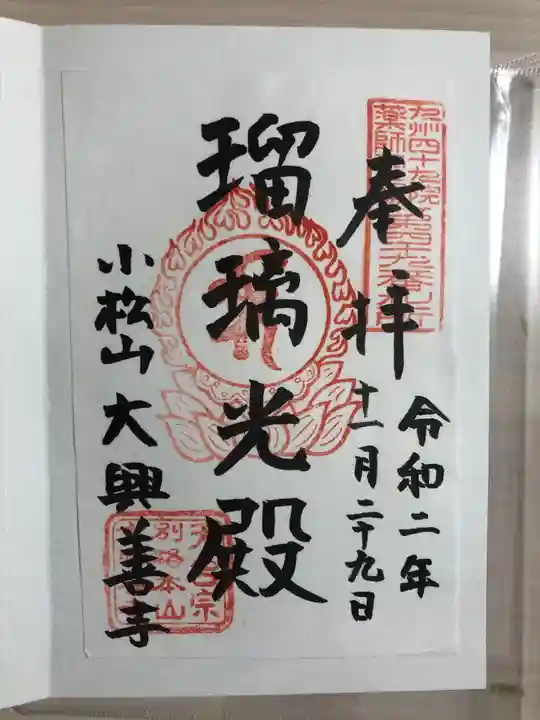 奉拝
令和二年
十一月二十九日
瑠璃光殿
小松山大興善寺
九州四十九院
薬師
天台宗
別格本山